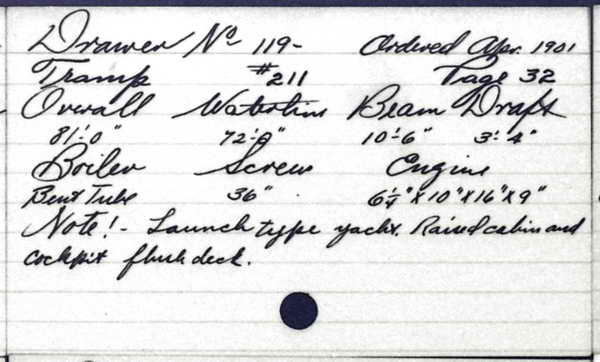 Drawer No 119- Ordered Apr. 1901
Tramp #211 Page 32
Overall Waterline Beam Draft
81'-0" 72'-0" 10'-6" 3'-4"
Boiler Screw Engine
Bent Tube 36" 6¼" x 10" x 16" x 9"
Note! - Launch type yacht. Raised cabin and
cockpit flush deck.